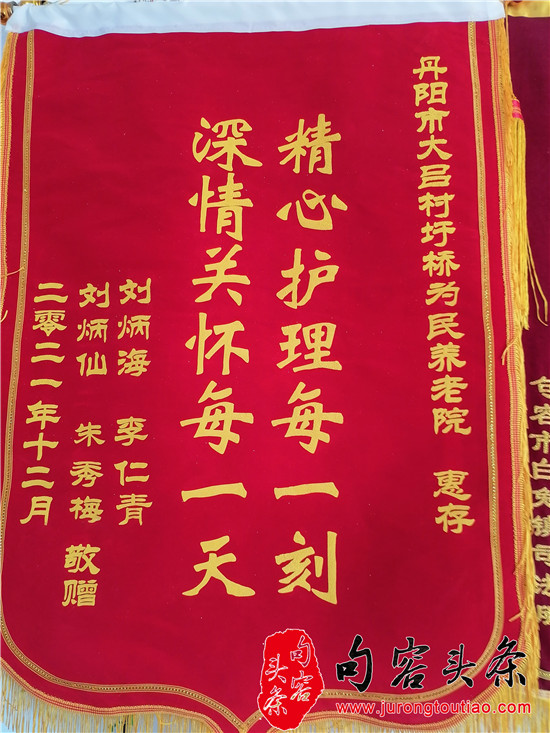 丹阳市大吕村圩桥为民养老院 惠存
精心护理每一刻
深情关怀每一天
刘炳海 李仁青
刘炳仙 朱秀梅 敬赠
二零二一年十二月
句容市白兔镇司法所
句容头条
句容头条
www.jurongtoutiao.com